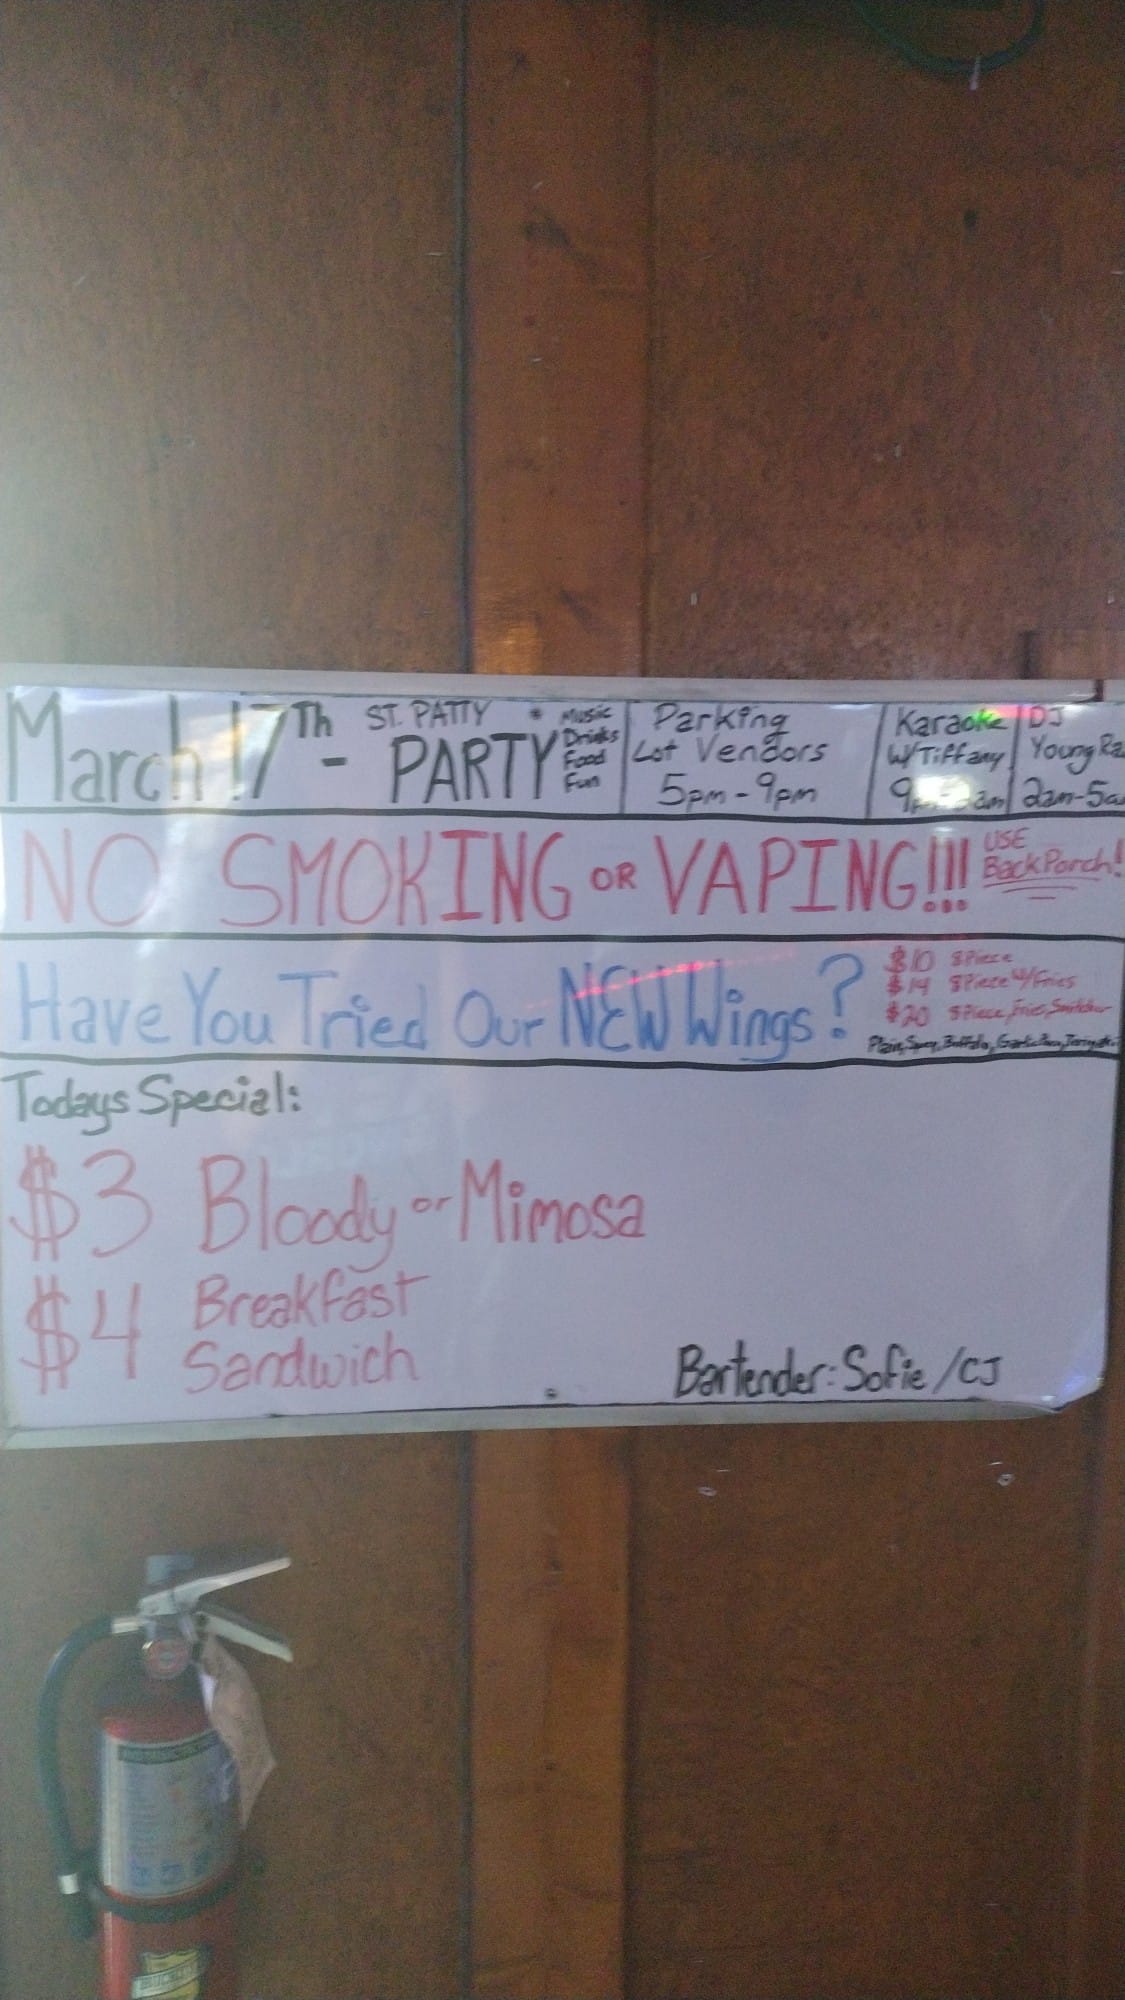 March 17Th - ST. PATTY PARTY
• Music
Drinks
Food
Fun
Parking
Lot Vendors
5pm - 9pm
Karaoke
W/Tiffany
DJ
Young
2am-5a
NO SMOKING OR VAPING!!! USE
BackPorch!
Have You Tried Our NEW Wings?
$10 8 Piece
$14 8 Piece w/Fries
$20 8 Piece, Fries,
Plain, Spicy, Buffalo,
Todays Special:
$3 Bloody or Mimosa
$4 Breakfast
Sandwich
Bartender: Sofie/CJ